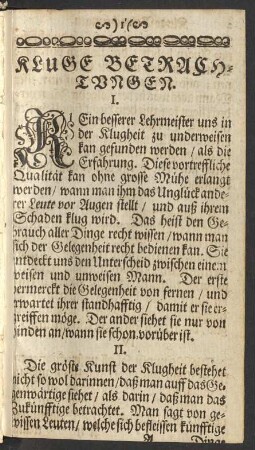 ) 1 (
KLUGE BETRACH-
TVNGEN.
I.
KEin besserer Lehrmeister uns in
der Klugheit zu underweisen
kan gefunden werden / als die
Erfahrung. Diese vortreffliche
Qualität kan ohne grosse Mühe erlangt
werden / wann man ihm das Unglück ande-
rer Leute vor Augen stellt / und auß ihrem
Schaden klug wird. Das heist den Ge-
brauch aller Dinge recht wissen / wann man
sich der Gelegenheit recht bedienen kan. Sie
entdeckt uns den Unterscheid zwischen einem
weisen und unweisen Mann. Der erste
vermerckt die Gelegenheit von fernen / und
erwartet ihrer standhafftig / damit er sie er-
greiffen möge. Der ander siehet sie nur von
hinden an / wann sie schon vorüber ist.
II.
Die gröste Kunst der Klugheit bestehet
nicht so wol darinnen / daß man auff das Ge-
genwärtige siehet / als darin / daß man das
Zukünfftige betrachtet. Man sagt von ge-
wissen Leuten / welche sich befleissen künfftige
A Dinge